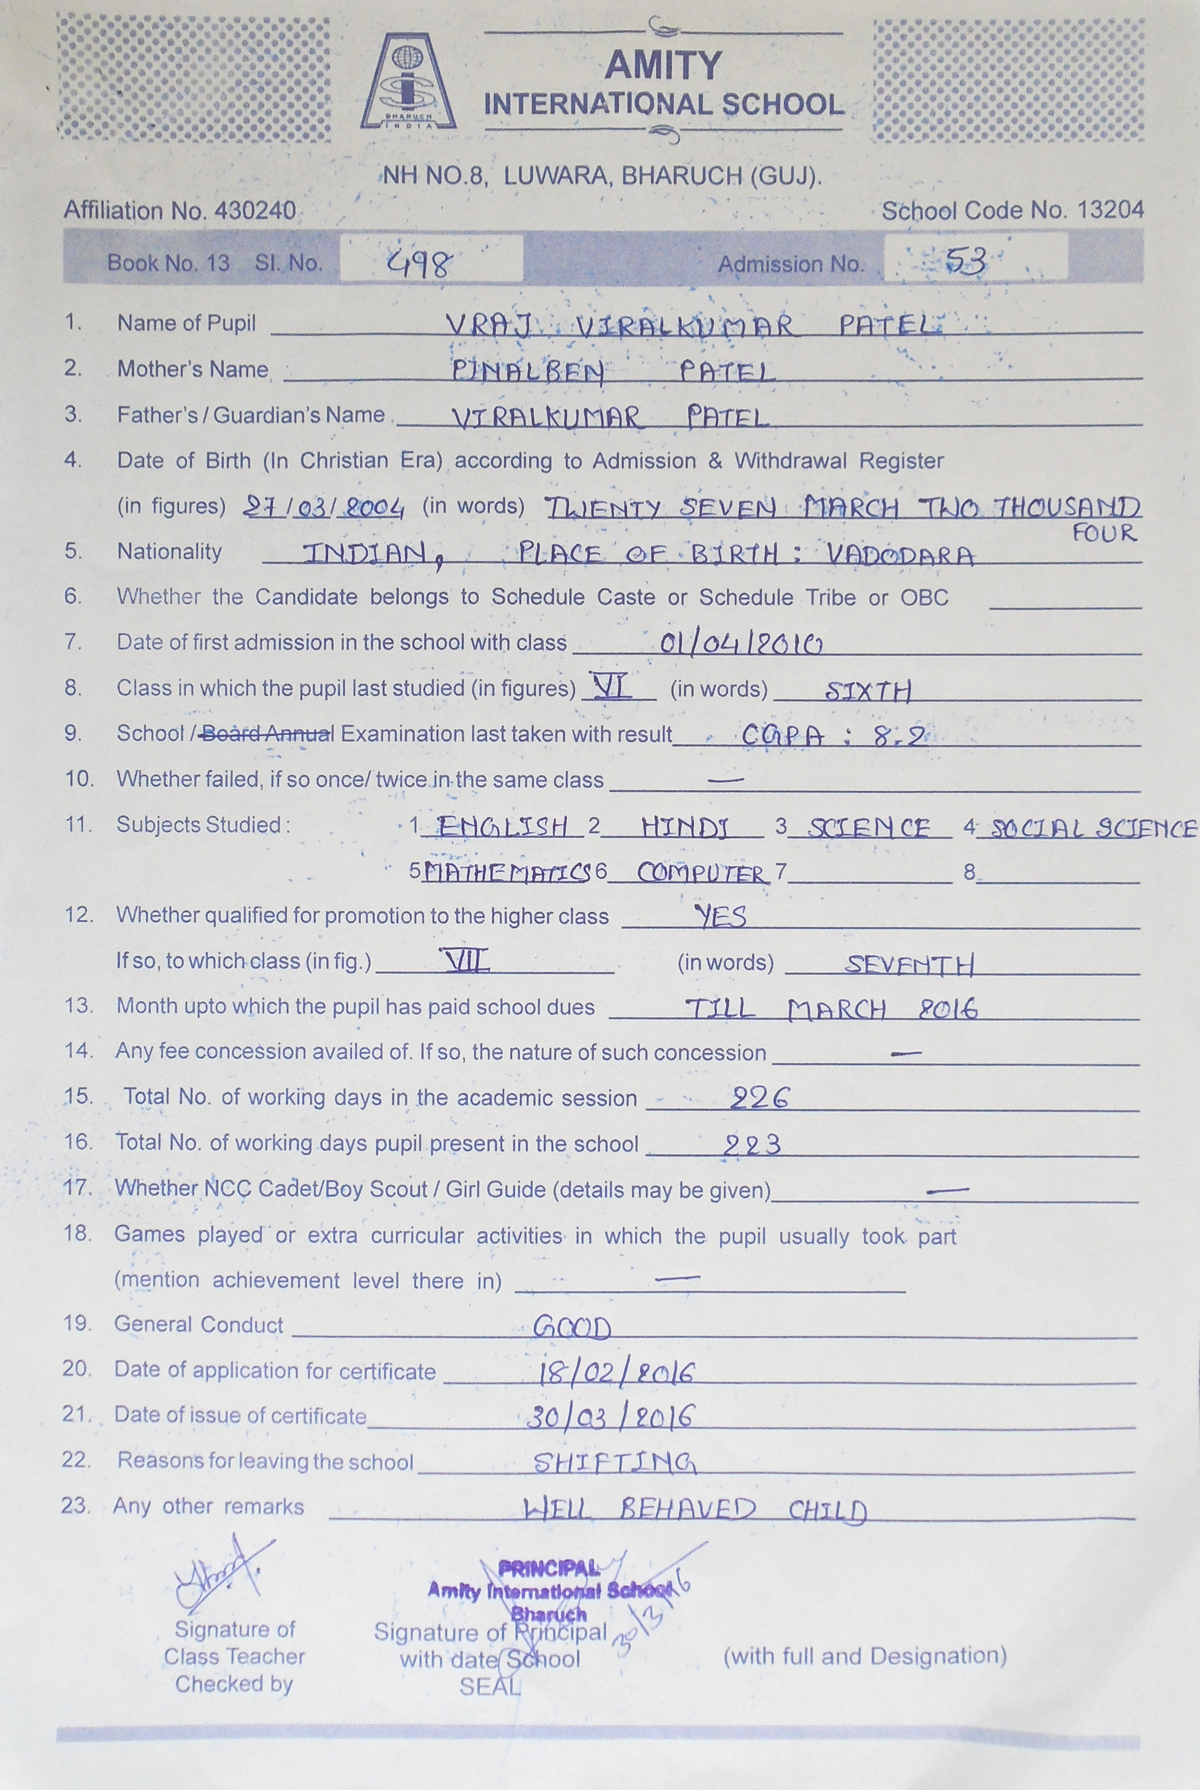 BHARUCH
INDIA
AMITY
INTERNATIONAL SCHOOL
NH NO.8, LUWARA, BHARUCH (GUJ).
Affiliation No. 430240 School Code No. 13204
Book No. 13 Sl. No. 498 Admission No. 53
1. Name of Pupil VRAJ VIRALKUMAR PATEL
2. Mother's Name PINALBEN PATEL
3. Father's / Guardian's Name VIRALKUMAR PATEL
4. Date of Birth (In Christian Era) according to Admission & Withdrawal Register
(in figures) 27/03/2004 (in words) TWENTY SEVEN MARCH TWO THOUSAND
FOUR
5. Nationality INDIAN, PLACE OF BIRTH : VADODARA
6. Whether the Candidate belongs to Schedule Caste or Schedule Tribe or OBC
7. Date of first admission in the school with class 01/04/2010
8. Class in which the pupil last studied (in figures) VI (in words) SIXTH
9. School / Board Annual Examination last taken with result CGPA : 8.2
10. Whether failed, if so once/ twice in the same class —
11. Subjects Studied : 1 ENGLISH 2 HINDI 3 SCIENCE 4 SOCIAL SCIENCE
5 MATHEMATICS 6 COMPUTER 7 8
12. Whether qualified for promotion to the higher class YES
If so, to which class (in fig.) VII (in words) SEVENTH
13. Month upto which the pupil has paid school dues TILL MARCH 2016
14. Any fee concession availed of. If so, the nature of such concession —
15. Total No. of working days in the academic session 226
16. Total No. of working days pupil present in the school 223
17. Whether NCC Cadet/Boy Scout / Girl Guide (details may be given) —
18. Games played or extra curricular activities in which the pupil usually took part
(mention achievement level there in) —
19. General Conduct GOOD
20. Date of application for certificate 18/02/2016
21. Date of issue of certificate 30/03/2016
22. Reasons for leaving the school SHIFTING
23. Any other remarks WELL BEHAVED CHILD
PRINCIPAL
Amity International School
Bharuch
30/3/16
Signature of Signature of Principal
Class Teacher with date School (with full and Designation)
Checked by SEAL